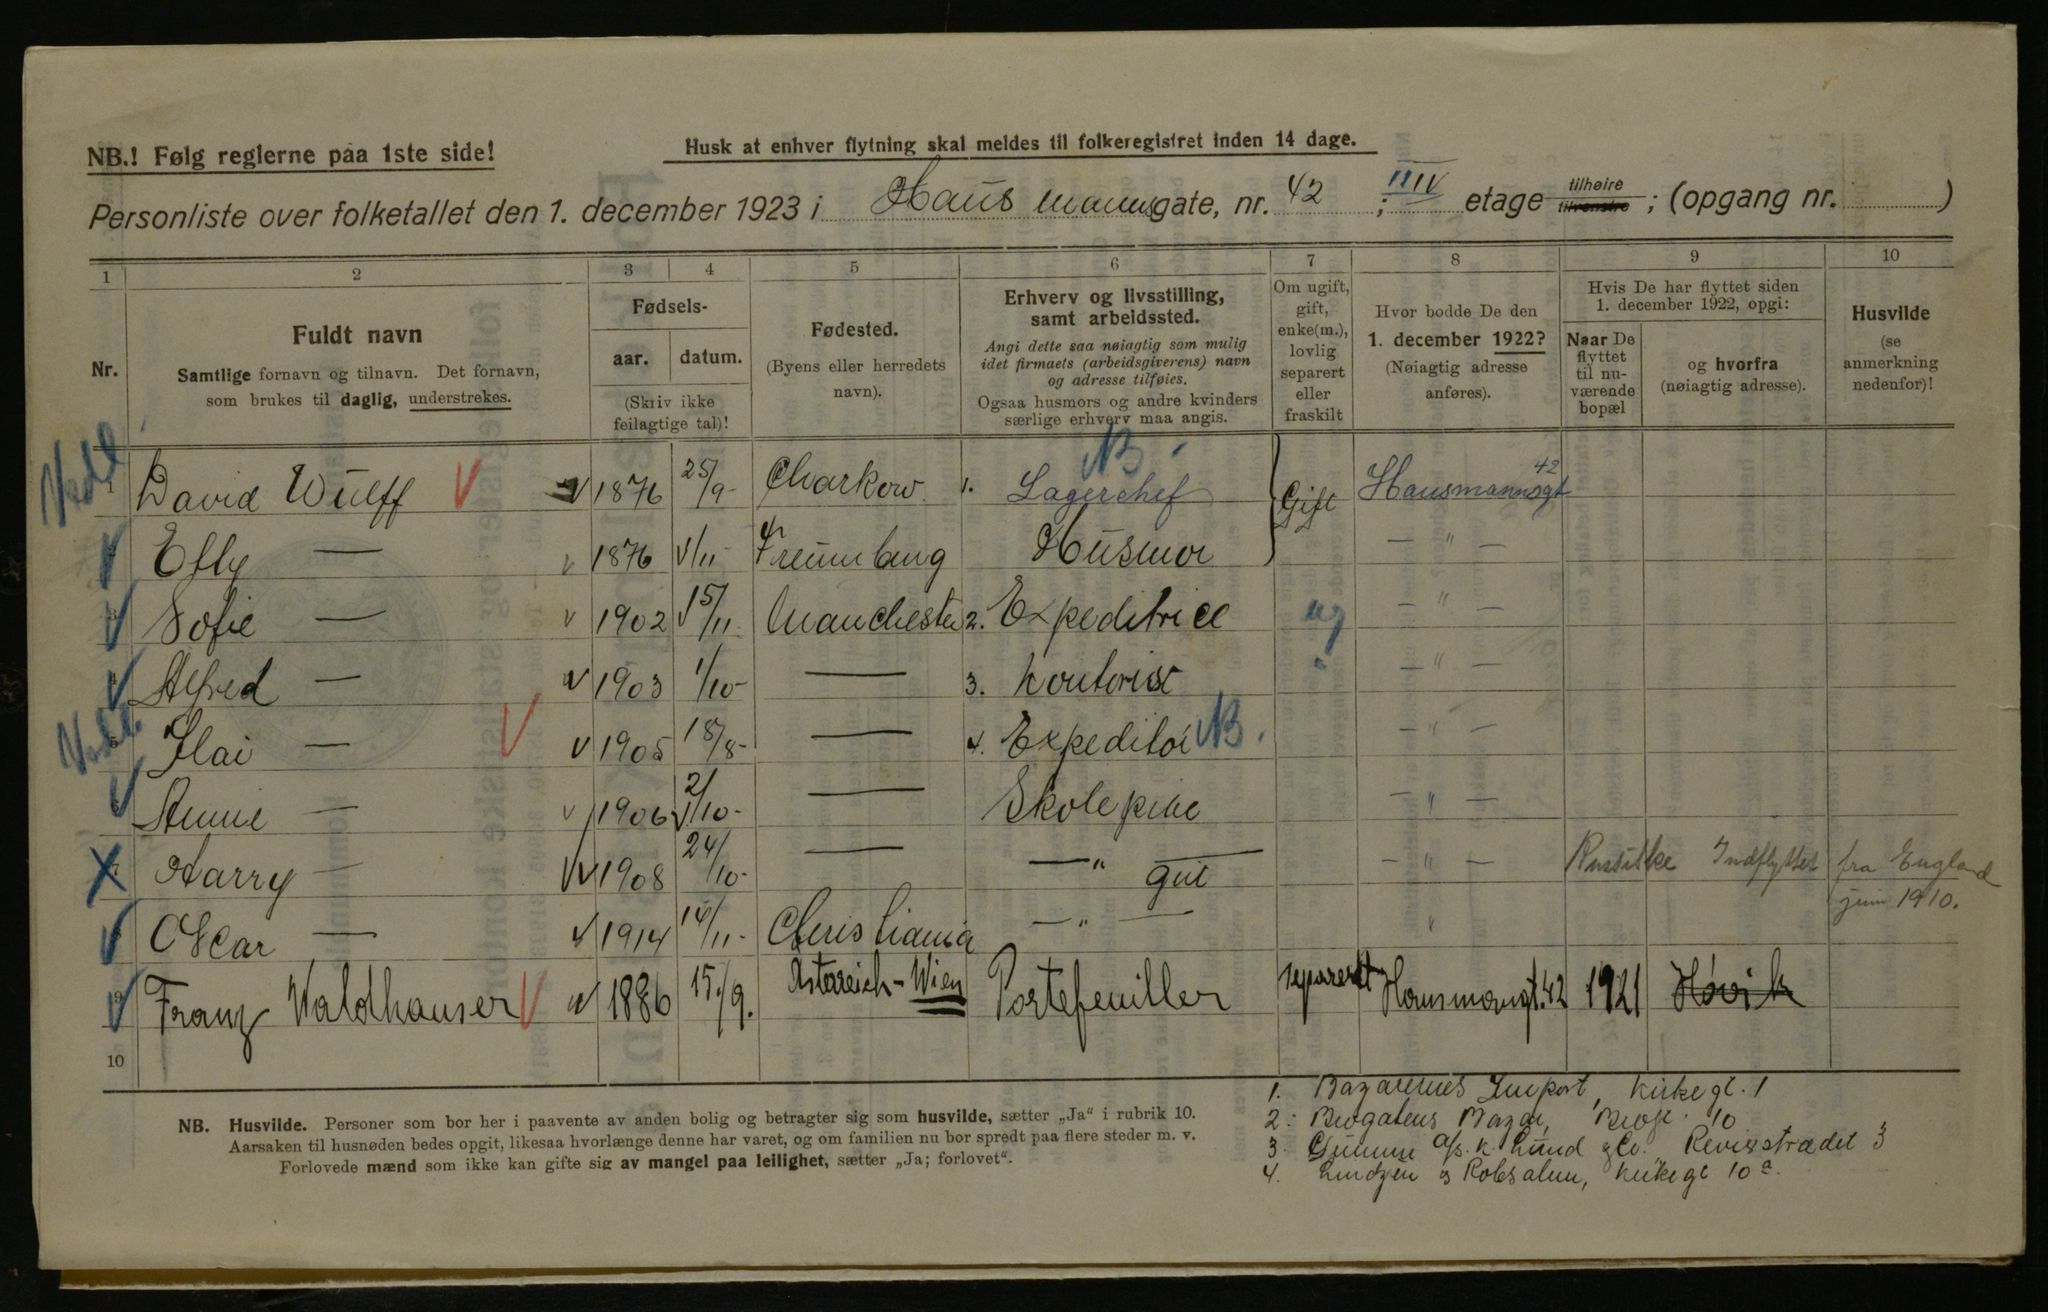 NB.! Følg reglerne paa 1ste side!
Husk at enhver flytning skal meldes til folkeregistret inden 14 dage.
Personliste over folketallet den 1. december 1923 i Hausmannsgate, nr. 42 ; III IV etage tilhøire tilvenstre ; (opgang nr. )
1 2 3 4 5 6 7 8 9 10
Nr.
Fuldt navn
Samtlige fornavn og tilnavn. Det fornavn,
som brukes til daglig, understrekes.
Fødsels-
aar. datum.
(Skriv ikke
feilagtige tal)!
Fødested.
(Byens eller herredets
navn).
Erhverv og livsstilling,
samt arbeidssted.
Angi dette saa nøiagtig som mulig
idet firmaets (arbeidsgiverens) navn
og adresse tilføies.
Ogsaa husmors og andre kvinders
særlige erhverv maa angis.
Om ugift,
gift,
enke(m.),
lovlig
separert
eller
fraskilt
Hvor bodde De den
1. december 1922?
(Nøiagtig adresse
anføres).
Hvis De har flyttet siden
1. december 1922, opgi:
Naar De
flyttet
til nu-
værende
bopæl
og hvorfra
(nøiagtig adresse).
Husvilde
(se
anmerkning
nedenfor)!
1 David Wulff 1876 25/9 Charkow 1. Lagerchef Gift Hausmannsgt 42
Etly — 1876 /11 Husmor — " —
Sofie — 1902 15/11 Manchester 2. Expeditrice ug — " —
Alfred — 1903 1/10 — 3. Kontorist " — " —
Ilai — 1905 18/8 — 4. Expeditør — " —
Annie — 1906 2/10 — Skolepike — " —
Harry — 1908 24/10 — — " — gut — " — Russiske Indflyttet fra England
juni 1910.
Oscar — 1914 14/11 Christiania — " — "
9 Franz Waldhauser 1886 15./9. Østerreich-Wien Portefeuiller separert Hausmansgt. 42 1921 Høvik
10
1. Bazarernes Import, Kirkegt. 1
2. Brogatens Bazar, Brogt. 10
3 Gummi A/S. K. Lund & Co. Revierstrædet 3
4. Lindzen & Robsalm, Kirkegt 10a.
NB. Husvilde. Personer som bor her i paavente av anden bolig og betragter sig som husvilde, sætter „Ja“ i rubrik 10.
Aarsaken til husnøden bedes opgit, likesaa hvorlænge denne har varet, og om familien nu bor spredt paa flere steder m. v.
Forlovede mænd som ikke kan gifte sig av mangel paa leilighet, sætter „Ja; forlovet“.